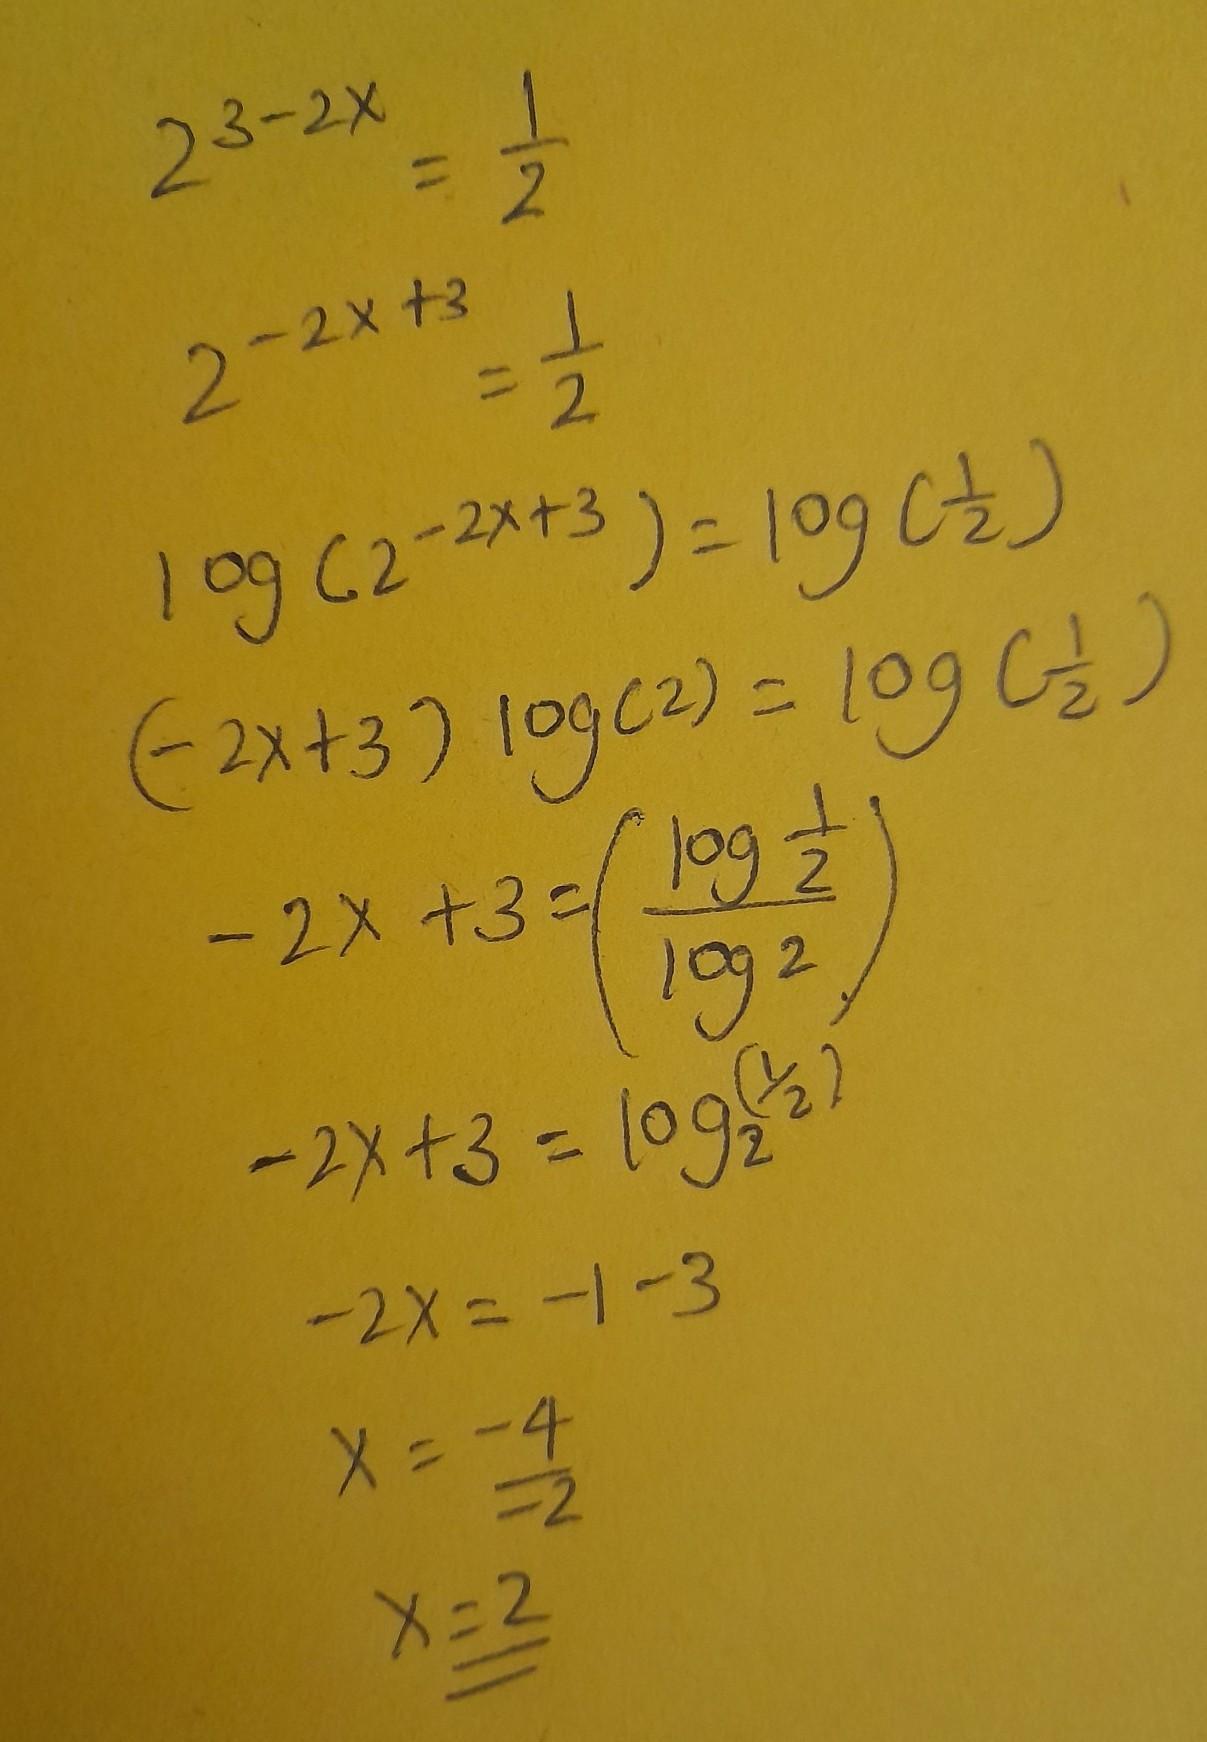 2^{3-2x} = \frac{1}{2}
2^{-2x+3} = \frac{1}{2}
log(2^{-2x+3}) = log(\frac{1}{2})
(-2x+3) log(2) = log(\frac{1}{2})
-2x+3 = (\frac{log \frac{1}{2}}{log 2})
-2x+3 = log_2^{(1/2)}
-2x = -1-3
x = \frac{-4}{-2}
x = 2